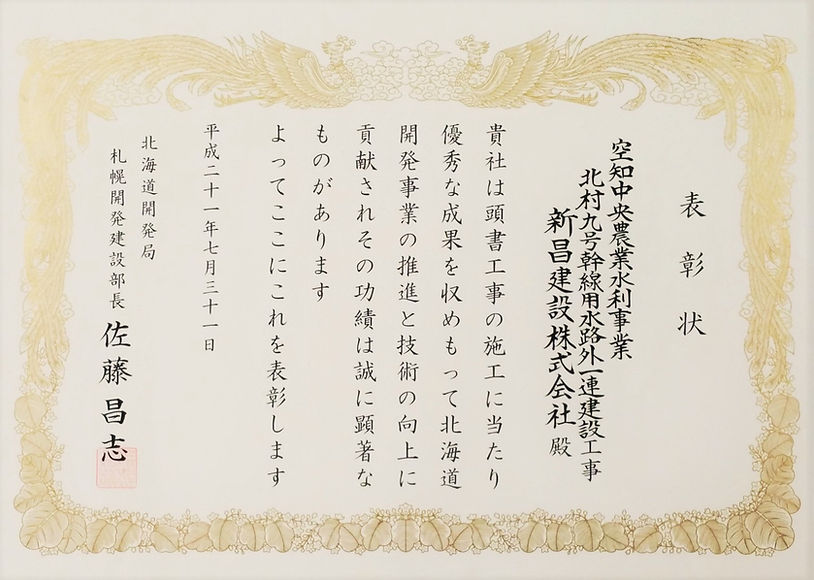 表彰状
空知中央農業水利事業
北村九号幹線用水路外一連建設工事
新昌建設株式会社 殿
貴社は頭書工事の施工に当たり
優秀な成果を収めもって北海道
開発事業の推進と技術の向上に
貢献されその功績は誠に顕著な
ものがあります
よってここにこれを表彰します
平成二十一年七月三十一日
北海道開発局
札幌開発建設部長 佐藤昌志